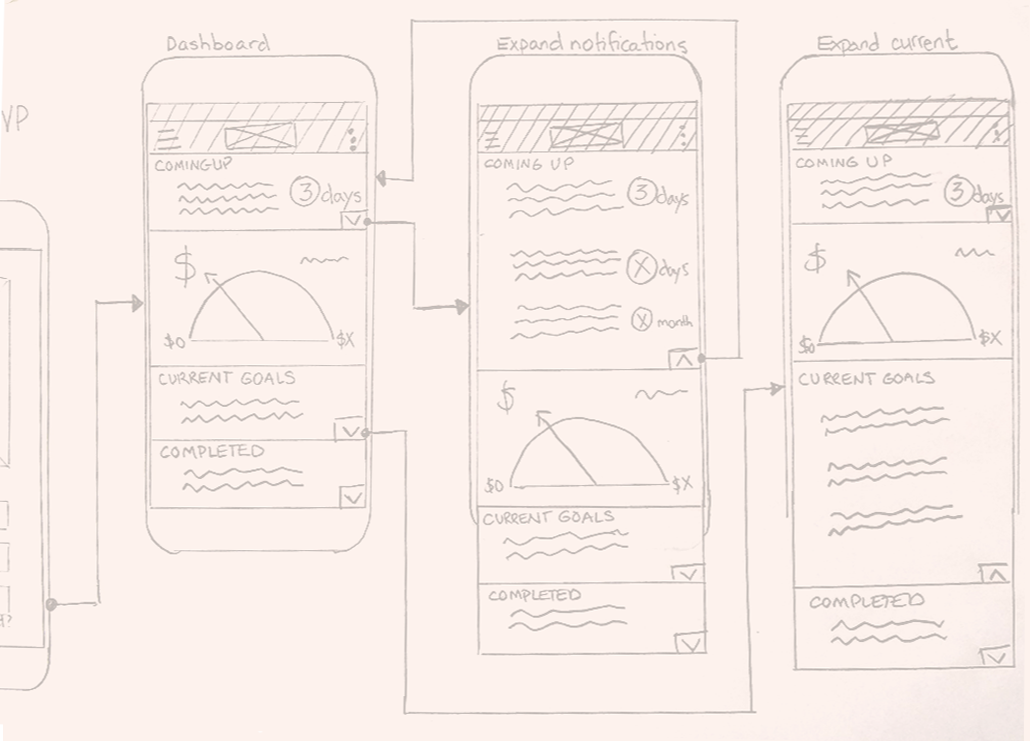 Dashboard
COMING UP
3 days
$
$0
$X
CURRENT GOALS
COMPLETED
Expand notifications
COMING UP
3 days
X days
X month
$
$0
$X
CURRENT GOALS
COMPLETED
Expand current
COMING UP
3 days
$
$0
$X
CURRENT GOALS
COMPLETED
VP